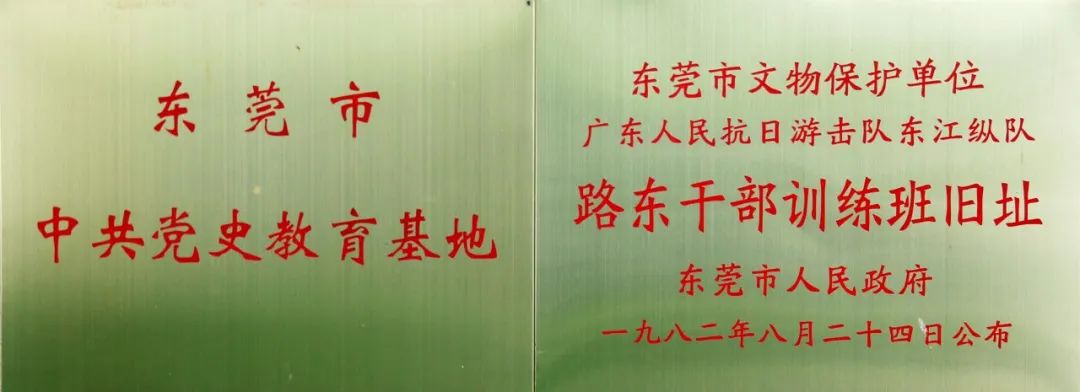 东莞市
中共党史教育基地
东莞市文物保护单位
广东人民抗日游击队东江纵队
路东干部训练班旧址
东莞市人民政府
一九八二年八月二十四日公布